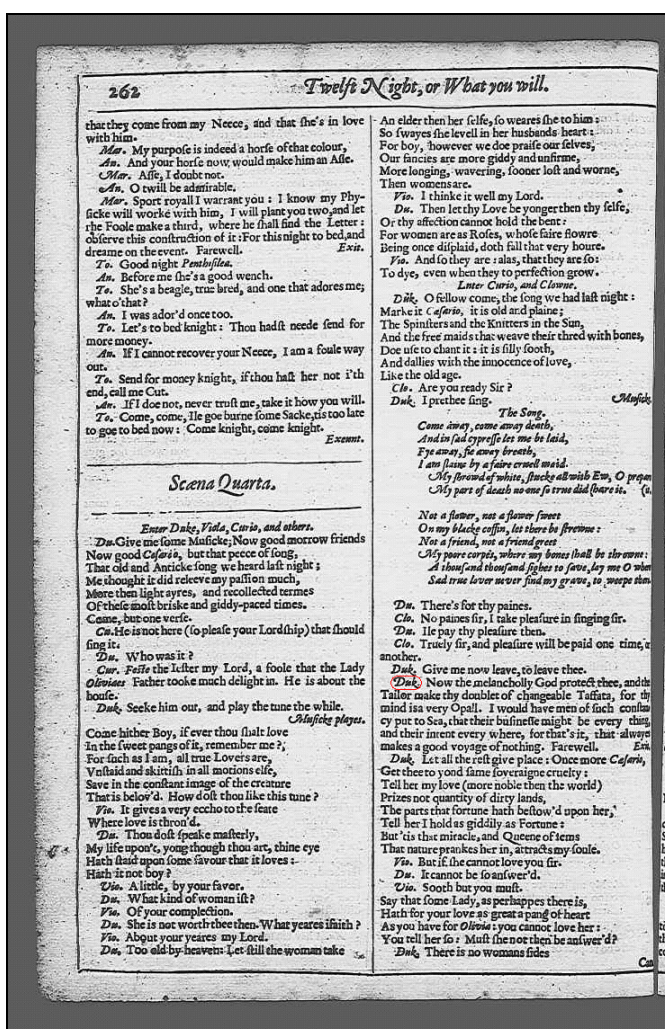 262
Twelft Night, or What you will.
that they come from my Neece, and that ſhe's in love
with him.
Mar. My purpoſe is indeed a horſe of that colour,
An. And your horſe now would make him an Aſſe.
Mar. Aſſe, I doubt not.
An. O twill be admirable.
Mar. Sport royall I warrant you: I know my Phy-
ſicke will worke with him, I will plant you two, and let
the Foole make a third, where he ſhall find the Letter:
obſerve this conſtruction of it: For this night to bed, and
dreame on the event. Farewell. Exit.
To. Good night Pentheſilea.
An. Before me ſhe's a good wench.
To. She's a beagle, true bred, and one that adores me;
what o'that?
An. I was ador'd once too.
To. Let's to bed knight: Thou hadſt neede ſend for
more money.
An. If I cannot recover your Neece, I am a foule way
out.
To. Send for money knight, if thou haſt her not i'th
end, call me Cut.
An. If I doe not, never truſt me, take it how you will.
To. Come, come, Ile goe burne ſome Sacke, tis too late
to goe to bed now: Come knight, come knight.
Exeunt.
Scæna Quarta.
Enter Duke, Viola, Curio, and others.
Du. Give me ſome Muſicke; Now good morrow friends
Now good Ceſario, but that peece of ſong,
That old and Anticke ſong we heard laſt night;
Me thought it did releeve my paſſion much,
More then light ayres, and recollected termes
Of theſe moſt briske and giddy-paced times.
Come, but one verſe.
Cu. He is not here (ſo pleaſe your Lordſhip) that ſhould
ſing it.
Du. Who was it?
Cur. Feſte the Ieſter my Lord, a foole that the Lady
Oliviaes Father tooke much delight in. He is about the
houſe.
Duk. Seeke him out, and play the tune the while.
Muſicke playes.
Come hither Boy, if ever thou ſhalt love
In the ſweet pangs of it, remember me?;
For ſuch as I am, all true Lovers are,
Vnſtaid and skittiſh in all motions elſe,
Save in the conſtant image of the creature
That is belov'd. How doſt thou like this tune?
Vio. It gives a very eccho to the ſeate
Where love is thron'd.
Du. Thou doſt ſpeake maſterly,
My life upon't, yong though thou art, thine eye
Hath ſtaid upon ſome favour that it loves:
Hath it not boy?
Vio. A little, by your favor.
Du. What kind of woman iſt?
Vio. Of your complection.
Du. She is not worth thee then. What yeares ifaith?
Vio. About your yeares my Lord.
Du, Too old by heaven: Let ſtill the woman take
An elder then her ſelfe, ſo weares ſhe to him:
So ſwayes ſhe levell in her husbands heart:
For boy, however we doe praiſe our ſelves,
Our fancies are more giddy and unfirme,
More longing, wavering, ſooner loſt and worne,
Then womens are.
Vio. I thinke it well my Lord.
Du. Then let thy Love be yonger then thy ſelfe,
Or thy affection cannot hold the bent:
For women are as Roſes, whoſe faire flowre
Being once diſplaid, doth fall that very houre.
Vio. And ſo they are: alas, that they are ſo:
To dye, even when they to perfection grow.
Enter Curio, and Clowne.
Duk. O fellow come, the ſong we had laſt night:
Marke it Ceſario, it is old and plaine;
The Spinſters and the Knitters in the Sun,
And the free maids that weave their thred with bones,
Doe uſe to chant it: it is ſilly ſooth,
And dallies with the innocence of love,
Like the old age.
Clo. Are you ready Sir?
Duk. I prethee ſing. Muſicke
The Song.
Come away, come away death,
And in ſad cypreſſe let me be laid,
Fye away, fie away breath,
I am ſlaine by a faire cruell maid.
My ſhrowd of white, ſtucke all with Ew, O prepar
My part of death no one ſo true did ſhare it. (it,
Not a flower, not a flower ſweet
On my blacke coffin, let there be ſtrewne:
Not a friend, not a friend greet
My poore corpes, where my bones ſhall be throwne:
A thouſand thouſand ſighes to ſave, lay me O wher
Sad true lover never find my grave, to weepe ther
Du. There's for thy paines.
Clo. No paines ſir, I take pleaſure in ſinging ſir.
Du. Ile pay thy pleaſure then.
Clo. Truely ſir, and pleaſure will be paid one time, or
another.
Duk. Give me now leave, to leave thee.
Duk. Now the melancholly God protect thee, and the
Tailor make thy doublet of changeable Taffata, for thy
mind is a very Opall. I would have men of ſuch conſtan
cy put to Sea, that their buſineſſe might be every thing,
and their intent every where, for that's it, that alwayes
makes a good voyage of nothing. Farewell. Exit.
Duk. Let all the reſt give place: Once more Ceſario,
Get thee to yond ſame ſoveraigne cruelty:
Tell her my love (more noble then the world)
Prizes not quantity of dirty lands,
The parts that fortune hath beſtow'd upon her,
Tell her I hold as giddily as Fortune:
But 'tis that miracle, and Queene of Iems
That nature prankes her in, attracts my ſoule.
Vio. But if ſhe cannot love you ſir.
Du. It cannot be ſo anſwer'd.
Vio. Sooth but you muſt.
Say that ſome Lady, as perhappes there is,
Hath for your love as great a pang of heart
As you have for Olivia: you cannot love her:
You tell her ſo: Muſt ſhe not then be anſwer'd?
Duk. There is no womans ſides
Can